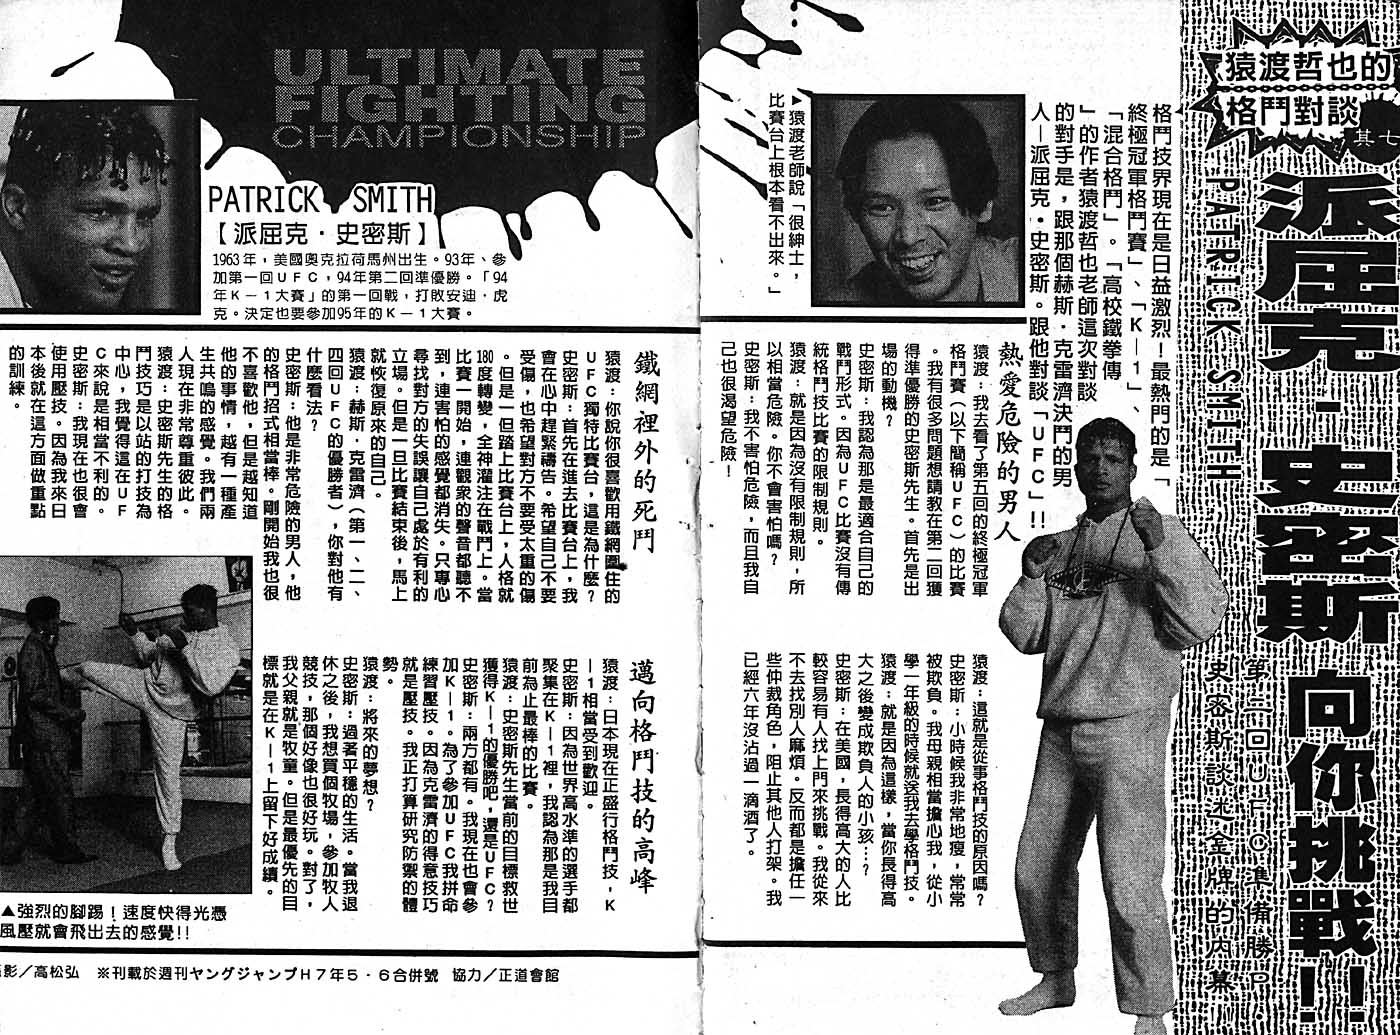 猿渡哲也的
格鬥對談
其七
派屈克·史密斯 向你挑戰!!
PATRICK·SMITH
第二回UFC準備勝P
史密斯談送金牌的內幕
格鬥技界現在是日益激烈！最熱門的是「
終極冠軍格鬥賽」、「K－1」、
「混合格鬥」。「高校鐵拳傳
」的作者猿渡哲也老師這次對談
的對手是，跟那個赫斯·克雷濟決鬥的男
人－派屈克·史密斯。跟他對談「UFC」!!
▶猿渡老師說「很紳士，
比賽台上根本看不出來。」
熱愛危險的男人
猿渡：我去看了第五回的終極冠軍
格鬥賽（以下簡稱UFC）的比賽
。我有很多問題想請教在第二回獲
得準優勝的史密斯先生。首先是出
場的動機？
史密斯：我認為那是最適合自己的
戰鬥形式。因為UFC比賽沒有傳
統格鬥技比賽的限制規則。
猿渡：就是因為沒有限制規則，所
以相當危險。你不會害怕嗎？
史密斯：我不害怕危險，而且我自
己也很渴望危險！
猿渡：這就是從事格鬥技的原因嗎？
史密斯：小時候我非常地瘦，常常
被欺負。我母親相當擔心我，從小
學一年級的時候就送我去學格鬥技。
猿渡：就是因為這樣，當你長得高
大之後變成欺負人的小孩…？
史密斯：在美國，長得高大的人比
較容易有人找上門來挑戰。我從來
不去找別人麻煩。反而都是擔任一
些仲裁角色，阻止其他人打架。我
已經六年沒沾過一滴酒了。
ULTIMATE
FIGHTING
CHAMPIONSHIP
PATRICK SMITH
【派屈克·史密斯】
1963年，美國奧克拉荷馬州出生。93年、參
加第一回UFC，94年第二回準優勝。「94
年K－1大賽」的第一回戰，打敗安迪·虎
克。決定也要參加95年的K－1大賽。
鐵網裡外的死鬥
猿渡：你說你很喜歡用鐵網圍住的
UFC獨特比賽台，這是為什麼？
史密斯：首先在進去比賽台上，我
會在心中趕緊禱告。希望自己不要
受傷，也希望對方不要受太重的傷
。但是一但踏上比賽台上，人格就
180度轉變，全神灌注在戰鬥上。當
比賽一開始，連觀眾的聲音都聽不
到，連害怕的感覺都消失。只專心
尋找對方的失誤讓自己處於有利的
立場。但是一旦比賽結束後，馬上
就恢復原來的自己。
猿渡：赫斯·克雷濟（第一、二、
四回UFC的優勝者），你對他有
什麼看法？
史密斯：他是非常危險的男人，他
的格鬥招式相當棒。剛開始我也很
不喜歡他，但是越知道
他的事情，越有一種產
生共鳴的感覺。我們兩
人現在非常尊重彼此。
猿渡：史密斯先生的格
鬥技巧是以站的打技為
中心，我覺得這在UF
C來說是相當不利的。
史密斯：我現在也很會
使用壓技。因為我來日
本後就在這方面做重點
的訓練。
邁向格鬥技的高峰
猿渡：日本現在正盛行格鬥技，K
－1相當受到歡迎。
史密斯：因為世界高水準的選手都
聚集在K－1裡，我認為那是我目
前為止最棒的比賽。
猿渡：史密斯先生當前的目標救世
獲得K－1的優勝吧，還是UFC？
史密斯：兩方都有。我現在也會參
加K－1。為了參加UFC我拼命
練習壓技。因為克雷濟的得意技巧
就是壓技。我正打算研究防禦的體
勢。
猿渡：將來的夢想？
史密斯：過著平穩的生活。當我退
休之後，我想買個牧場，參加牧人
競技，那個好像也很好玩。對了，
我父親就是牧童。但是最優先的目
標就是在K－1上留下好成績。
▲強烈的腳踢！速度快得光憑
風壓就會飛出去的感覺!!
影／高松弘 ※刊載於週刊ヤングジャンプH7年5·6合併號 協力／正道會館